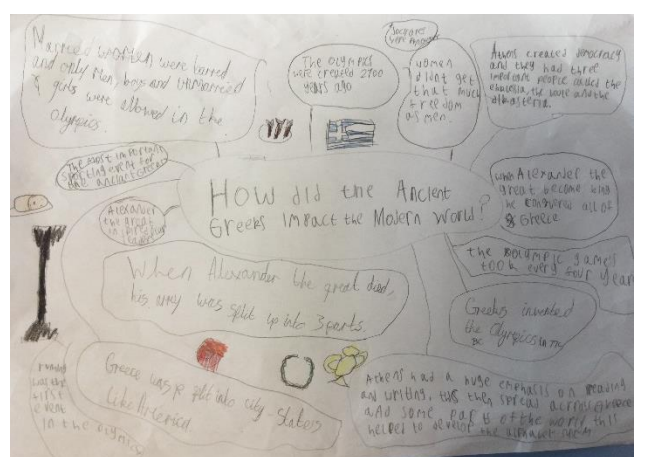 Married women were barred
and only Men, boys and unmarried
girls were allowed in the
olympics.
The Olympics
were created 2700
years ago
Socrates
were
women
didnt get
that much
freedom
as men.
Athens created democracy
and they had three
important people called the
the boule and the
The most important
sporting event for
the ancient Greeks
How did the Ancient
Greeks Impact the Modern World?
Alexander
the great
when Alexander the
great become king
he conquered all of
Greece
the olympic games
took every four years
When Alexander the great died,
his army was split up into 3 parts.
Greeks invented
the Olympics in
BC
Greece was split into city-staters
like America
was the
first
event
in the olympics
Athens had a huge emphasis on reading
and writing, this then spread across Greece
and some parts of the world this
helped to develop the alphabet